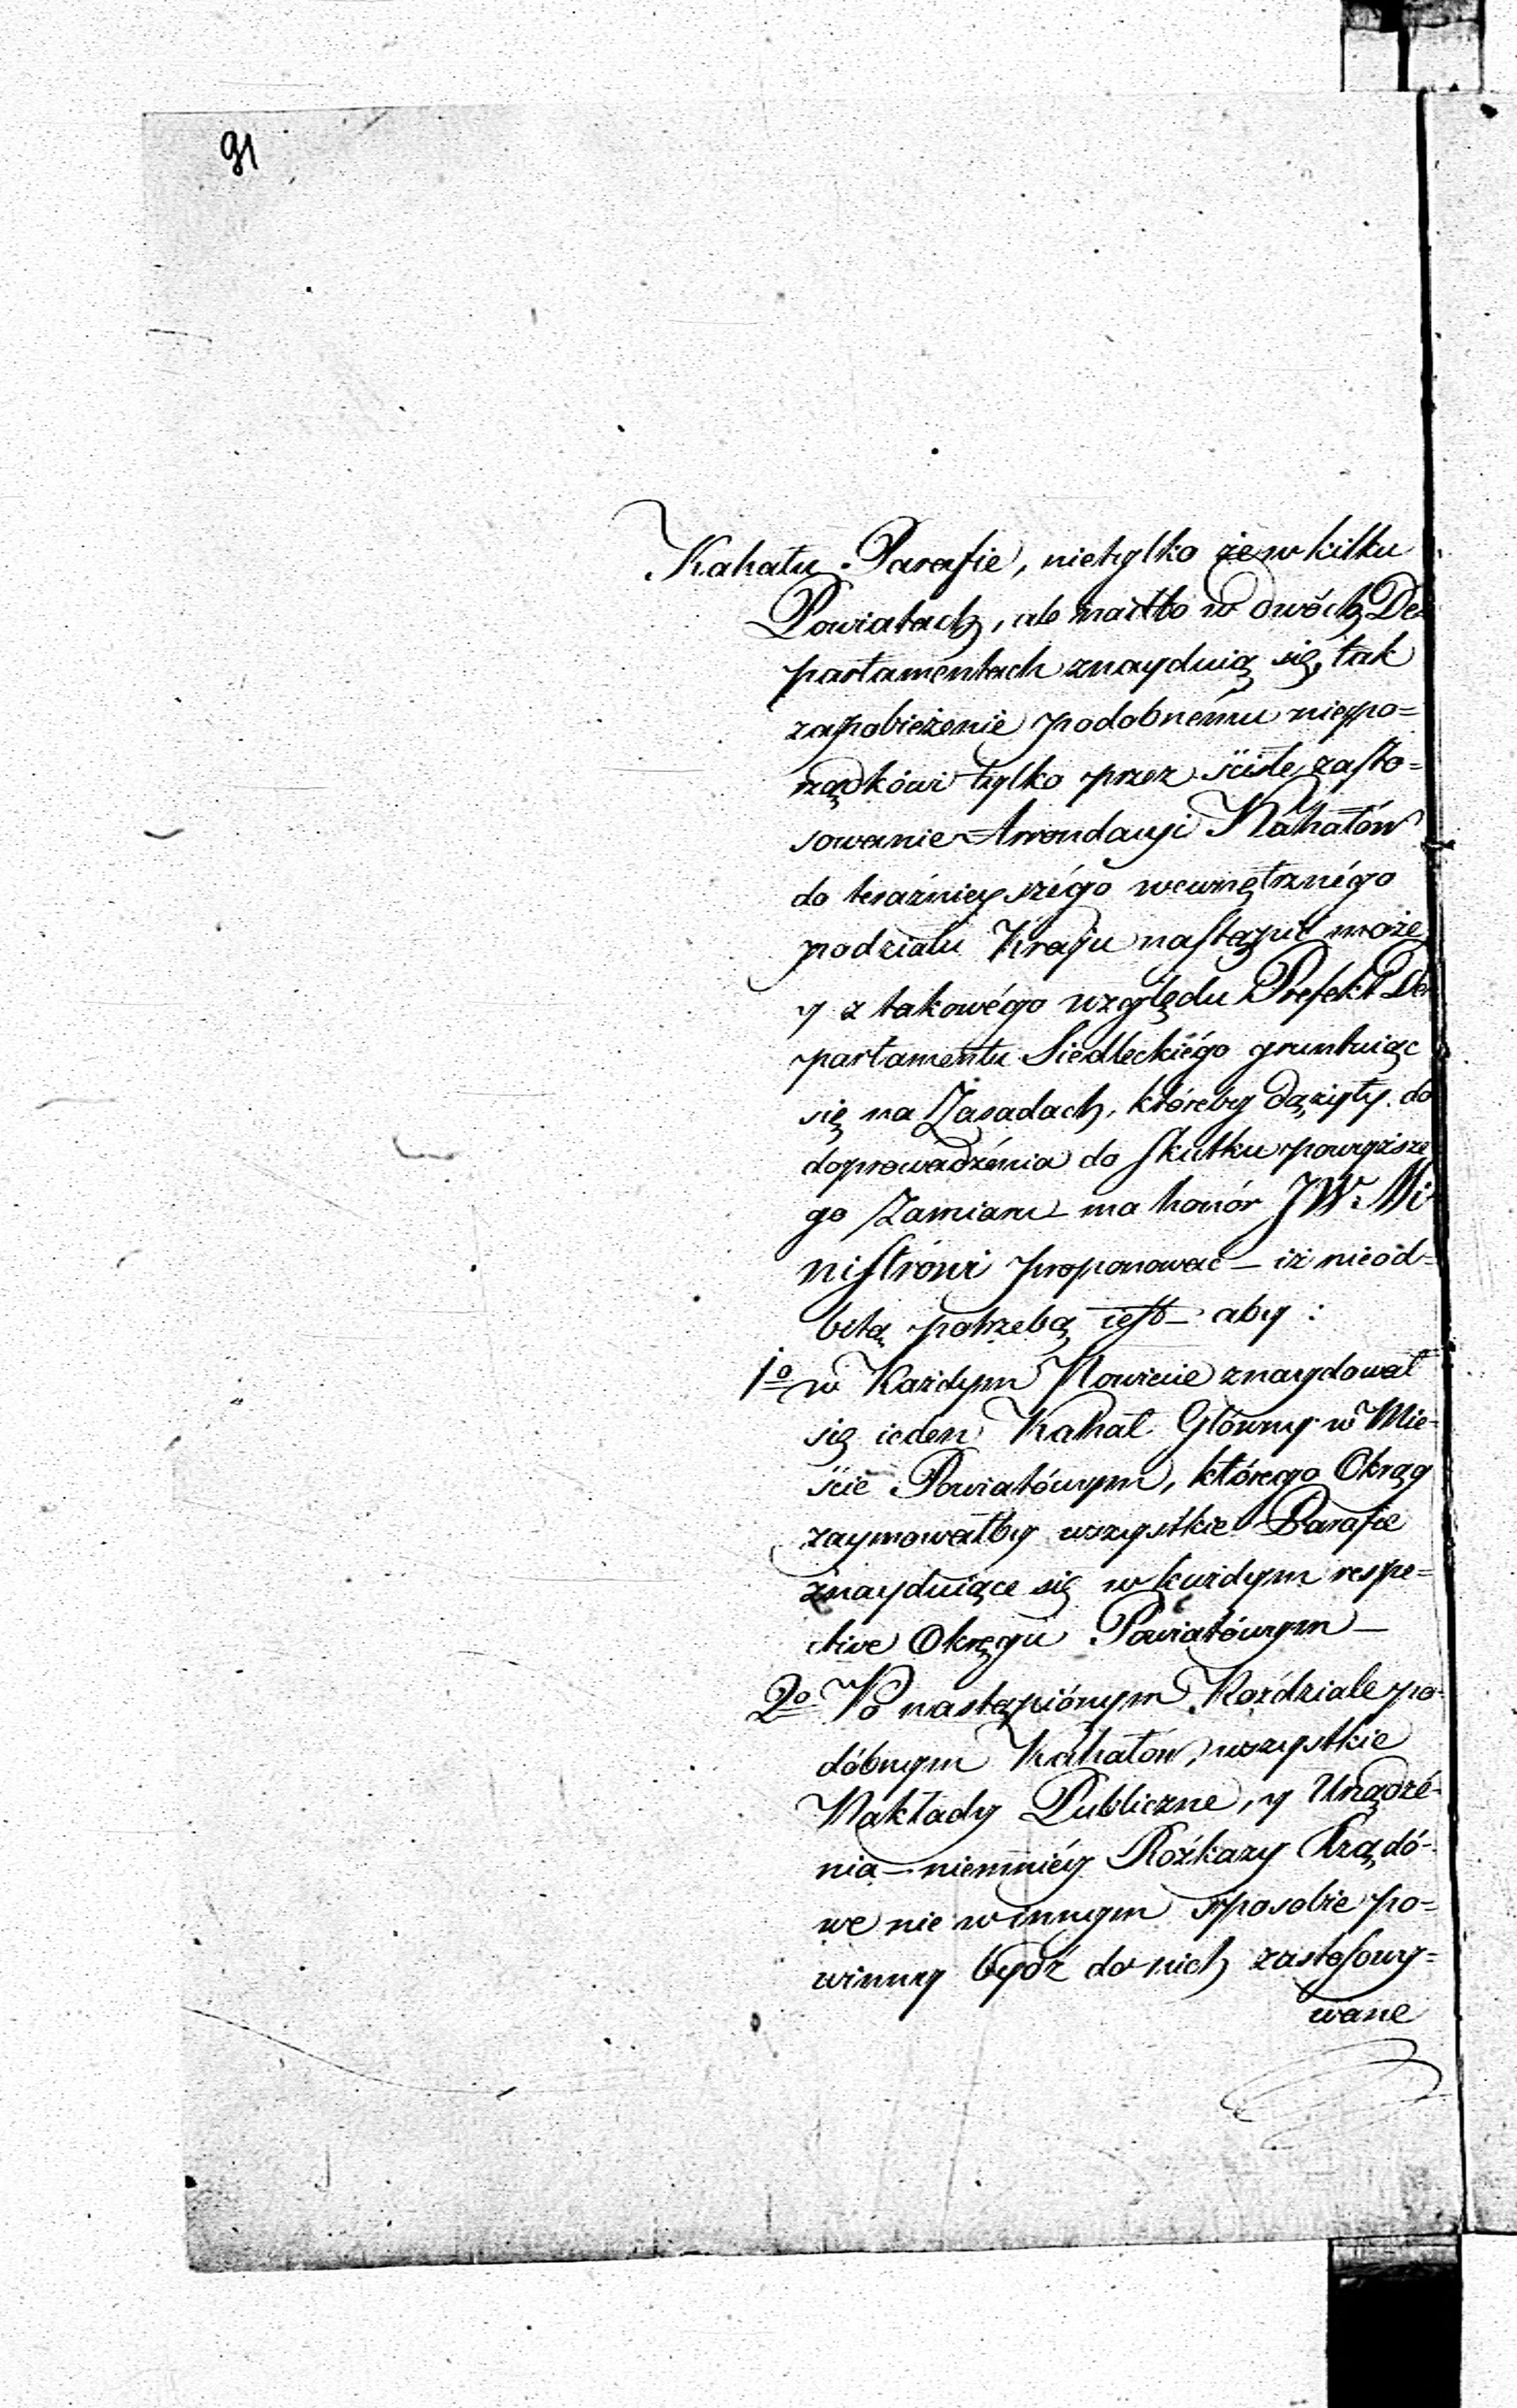 91
Kahału Parafie, nietylko że w kilku
Powiatach, ale nadto w dwóch De=
partamentach znayduią się, tak
zapobieżenie podobnému niepo=
rządkówi tylko przez ściśłe zasto=
sowanie Arrondacyi Kahałów
do teraźnieyszégo wewnętrznégo
podziału Kraju nastąpić może
y z takowégo względu Prefekt De=
partamentu Siedleckiégo gruntuiąc
się na Zasadach, któreby dążyły do
doprowadzénia do skutku powyższe
go Zamiaru ma honór JW. Mi=
nistrówi proponować – iż nieod=
bitą potrzebą iest – aby :
1o w Każdym Powiecie znaydował
się ieden Kahał Główny w Mie=
ście Powiatówym, którego Okrąg
zaymowałby wszystkie Parafie
znayduiące się w każdym respe=
ctive Okręgu Powiatówym –
2o Po nastąpiónym Rozdziale po=
dóbnym Kahałów, wszystkie
Nakłady Publiczne, y Urządzé=
nia – niemniéy Rozkazy Rządó=
we nie w innym sposobie po=
winny bydź do nich zastosowy=
wane